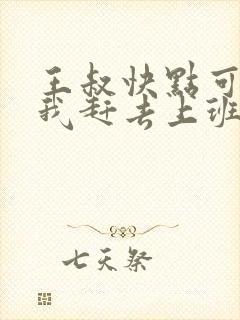 王叔快點可
我赶去上班
七天祭